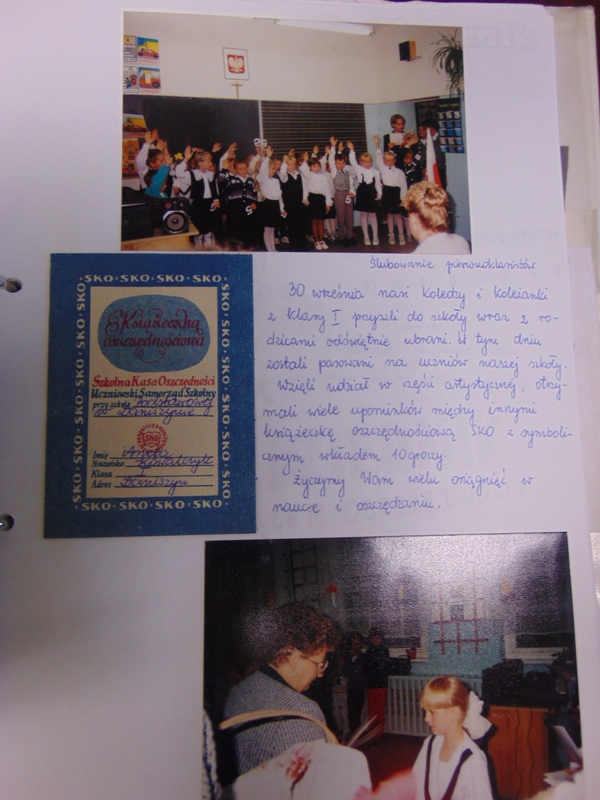 Ślubowanie pierwszoklasistów
30 września nasi koledzy i koleżanki
z klasy I przyszli do szkoły wraz z ro-
dzicami odświętnie ubrani. W tym dniu
zostali pasowani na uczniów naszej szkoły.
Wzięli udział w części artystycznej, otrzy-
mali wiele upominków między innymi
książeczkę oszczędnościową SKO z symboli-
cznym wkładem 10 groszy.
Życzymy Wam wielu osiągnięć w
nauce i oszczędzaniu.
SKO·SKO·SKO·SKO·SKO
Książeczka
oszczędnościowa
Szkolna Kasa Oszczędności
Uczniowski Samorząd Szkolny
przy szkole Podstawowej
w Daniszynie
SKO
Imię Aneta
Nazwisko
Klasa I
Adres Daniszyn
SKO·SKO·SKO·SKO·SKO